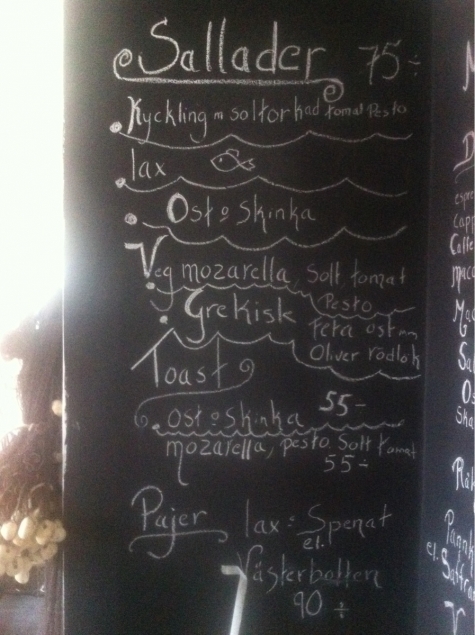 Sallader 75÷
Kyckling m soltorkad tomat Pesto
lax
Ost o Skinka
Veg mozarella, Solt tomat
Pesto
Grekisk Feta ost m
Oliver rödlök
Toast
ost o Skinka 55-
mozarella, pesto Solt tomat
55÷
Pajer lax o Spenat
el.
Västerbotten
90 ÷